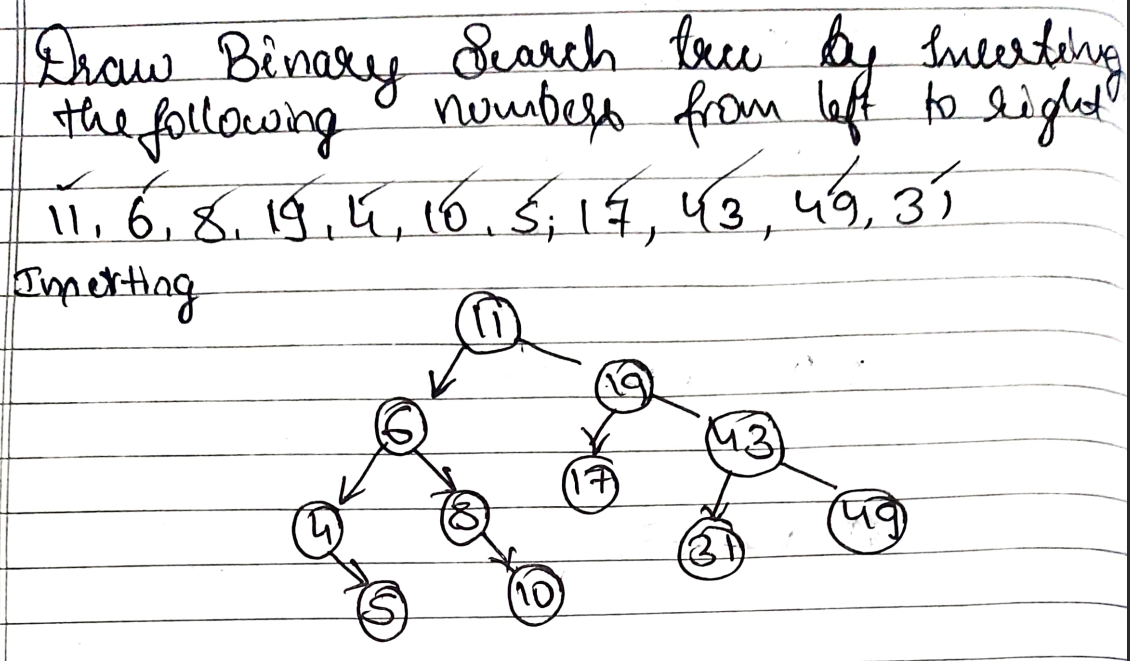 Draw Binary Search tree by Inserting
the following numbers from left to right
11, 6, 8, 19, 4, 10, 5, 17, 43, 49, 31
Inserting
11
19
6
43
17
4
8
49
31
5
10